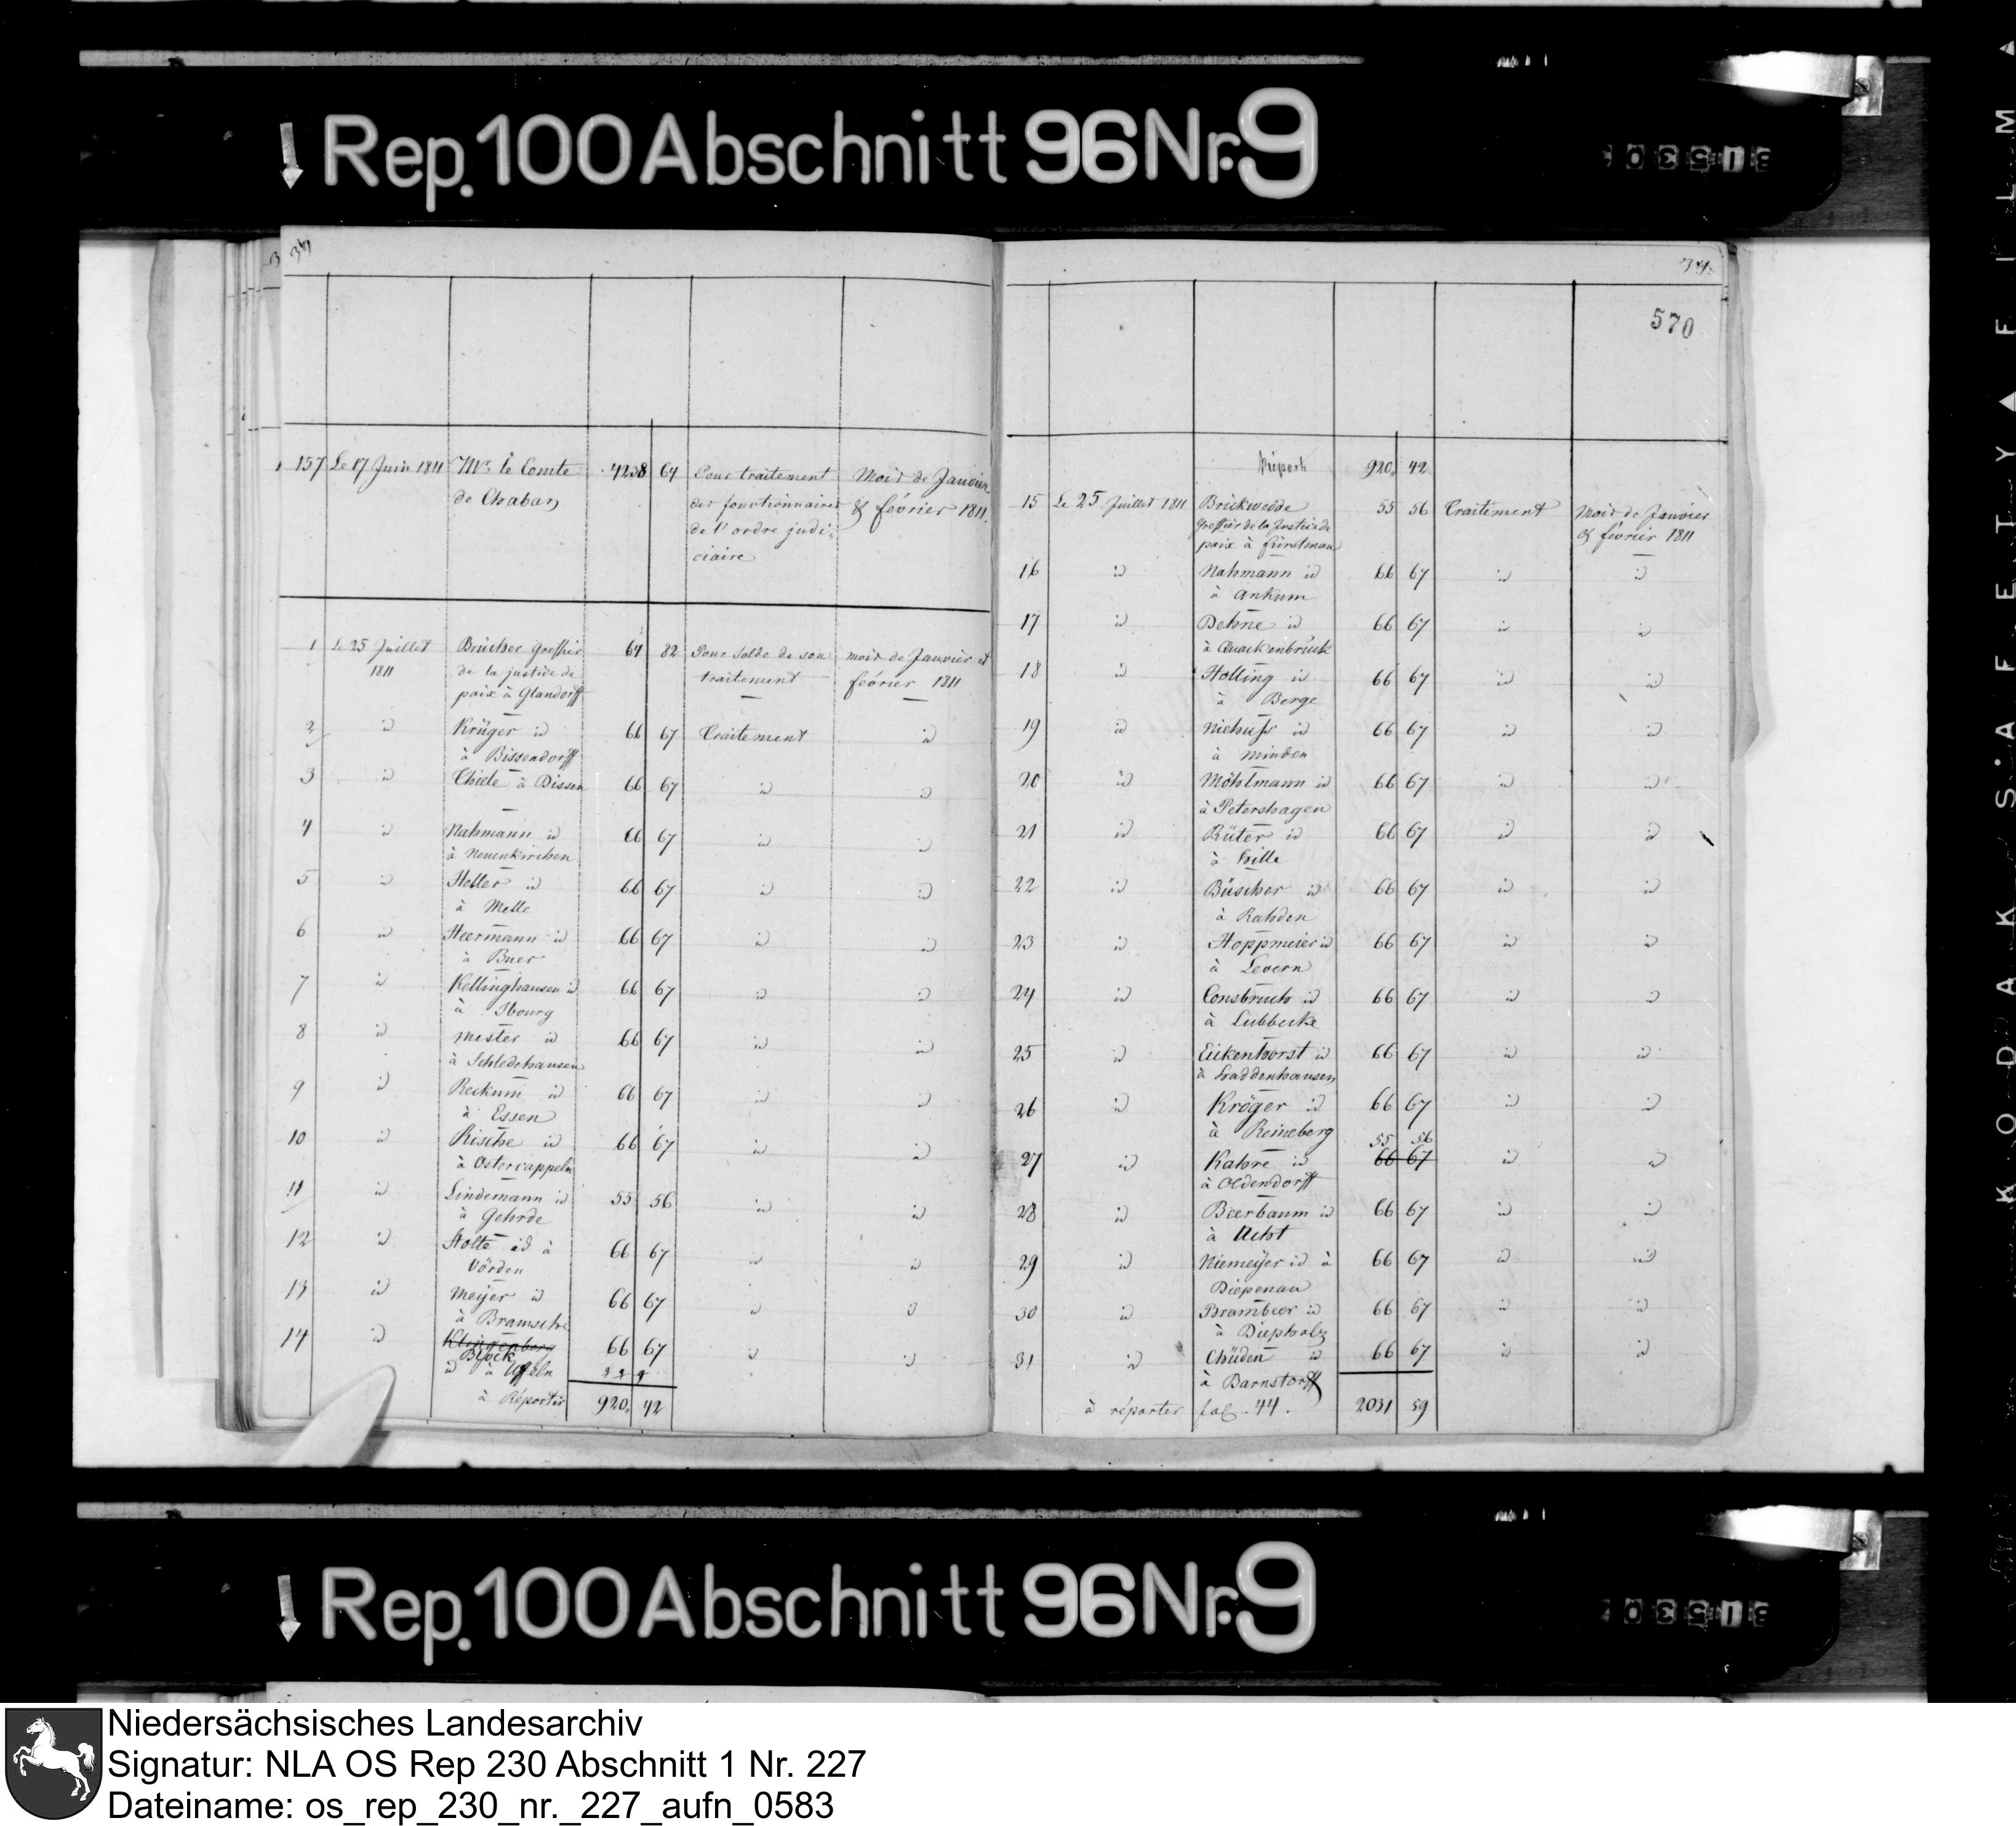 Rep. 100 Abschnitt 96 Nr. 9
34
157 Le 17 Juin 1811 Mr. le Comte 4238 64 Pour traitement Mois de Janvier
de Chaban des fonctionnaires & février 1811.
de l'ordre judi-
ciaire
1 Le 25 Juillet Brücher greffier 64 82 Pour solde de son mois de Janvier et
1811 de la justice de traitement février 1811
paix à Glandorff
2 id Krüger id 66 67 Traitement id
à Bissendorff
3 id Thiele à Dissen 66 67 id id
4 id Nahmann id 66 67 id id
à Neuenkirchen
5 id Heller id 66 67 id id
à Melle
6 id Heermann id 66 67 id id
à Buer
7 id Kellinghausen id 66 67 id id
à Ibourg
8 id Mester id 66 67 id id
à Schledehausen
9 id Reckum id 66 67 id id
à Essen
10 id Rische id 66 67 id id
à Ostercappeln
11 id Lindemann id 55 56 id id
à Gehrde
12 id Holte id à 66 67 id id
Vörden
13 id Meyer id 66 67 id id
à Bramsche
14 id Klingenberg 66 67 id id
Block
id à Uffeln
à Réporter 920. 42
570
Réport 920. 42
15 Le 25 Juillet 1811 Brickwedde 55 56 Traitement Mois de Janvier
greffier de la Justice de & février 1811
paix à fürstenau
16 id Nahmann id 66 67 id id
à Ankum
17 id Dehne id 66 67 id id
à Quackenbrück
18 id Holling id 66 67 id id
à Berge
19 id Niehuss id 66 67 id id
à Minden
20 id Möhlmann id 66 67 id id
à Petershagen
21 id Rüter id 66 67 id id
à hille
22 id Büscher id 66 67 id id
à Rahden
23 id Hoppmeier id 66 67 id id
à Levern
24 id Consbruch id 66 67 id id
à Lubbecke
25 id Eickenhorst id 66 67 id id
à haddenhausen
26 id Kröger id 66 67 id id
à Reineberg
55 56
27 id Kahre id 66 67 id id
à Oldendorff
28 id Beerbaum id 66 67 id id
à Ucht
29 id Niemeyer id à 66 67 id id
Diepenau
30 id Brambeer id 66 67 id id
à Diepholz
31 id Chüden id 66 67 id id
à Barnstorff
à réporter fol. 44. 2031 59
KODAK SAFETY FILM
Rep. 100 Abschnitt 96 Nr. 9
Niedersächsisches Landesarchiv
Signatur: NLA OS Rep 230 Abschnitt 1 Nr. 227
Dateiname: os_rep_230_nr._227_aufn_0583